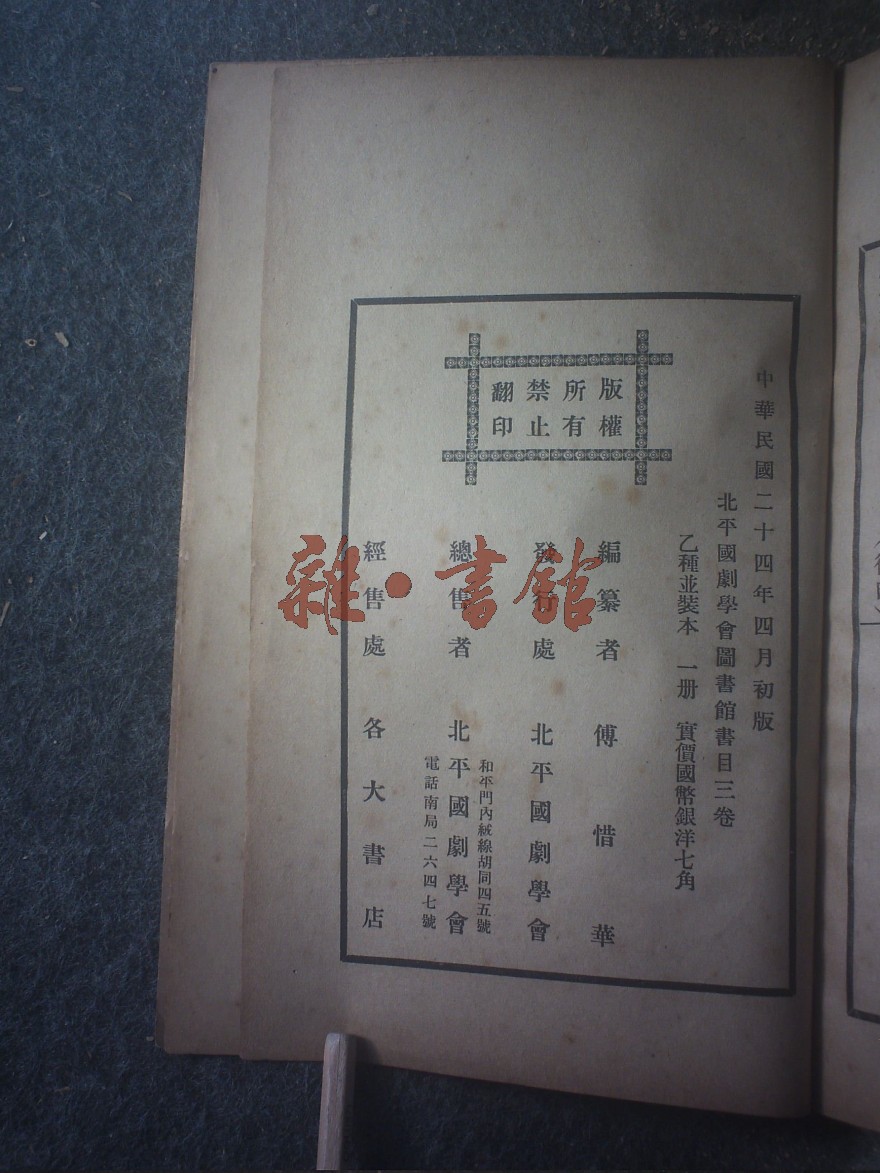 中華民國二十四年四月初版
北平國劇學會圖書館書目三卷
乙種並裝本 一册 實價國幣銀洋七角
版權
所有
禁止
翻印
編纂者 傅惜華
發行處 北平國劇學會
和平門內絨線胡同四五號
總售者 北平國劇學會
電話南局二六四七號
經售處 各大書店
雜·書館